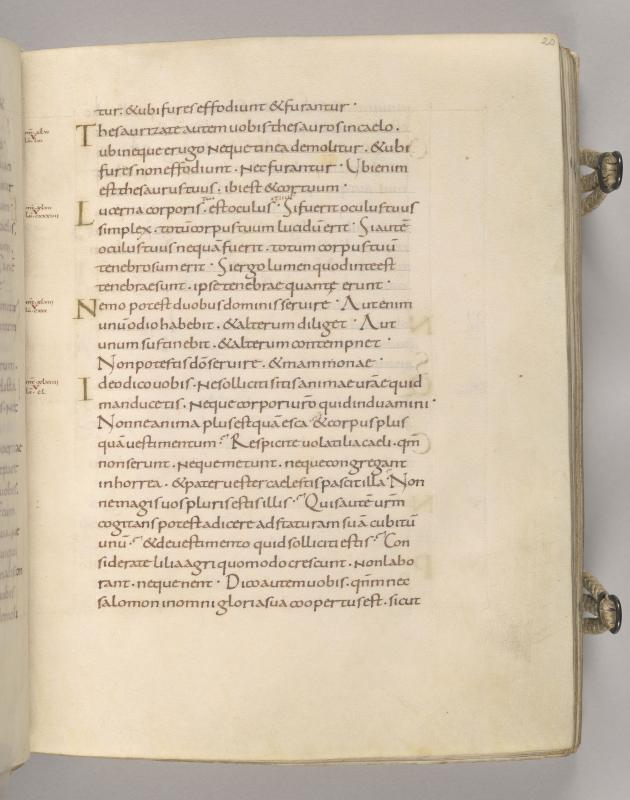 20
tur. & ubi fures effodiunt & furantur ·
Thesaurizate autem uobis thesauros in caelo.
ubi neque erugo neque tinea demolitur. & ubi
fures non effodiunt. Nec furantur · Ubi enim
est thesaurus tuus. ibi est & cor tuum ·
Lucerna corporis. est oculus · Si fuerit oculus tuus
simplex. totū corpus tuum lucidū erit · Si autē
oculus tuus nequā fuerit. totum corpus tuū
tenebrosum erit · Si ergo lumen quod in te est
tenebrae sunt. ipse tenebrae quantę erunt ·
Nemo potest duobus dominis seruire · Aut enim
unū odio habebit. & alterum diliget · Aut
unum sustinebit. & alterum contempnet ·
Non potestis dō seruire. & mammonae ·
Ideo dico uobis. Ne solliciti sitis animae urāe quid
manducetis. Neque corpori urō quid induamini ·
Nonne anima plus est quā esca & corpus plus
quā uestimentum · Respicite uolatilia caeli. qm̄
non serunt. Neque metunt. neque congregant
in horrea. & pater uester caelestis pascit illa · Non
ne magis uos pluris estis illis · Quis autē urm̄
cogitans potest adicere ad staturam suā cubitū
unū · & de uestimento quid solliciti estis · Con
siderate lilia agri quomodo crescunt. Non labo
rant. neque nent · Dico autem uobis. qm̄ nec
salomon in omni gloria sua coopertus est. sicut